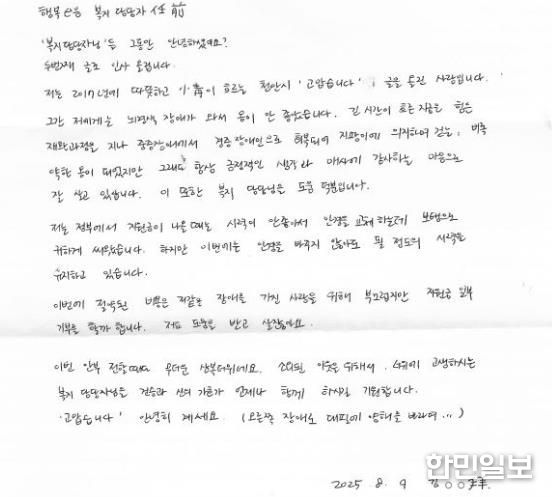 행복e음 복지 담당자 任前
'복지담당자님'들 그동안 안녕하셨어요?
두번째 글로 인사 올립니다.
저는 2017년에 따뜻하고 흐르는 천안시 '고맙습니다' 글을 올린 사람입니다.
그간 저에게는 뇌경색 장애가 와서 몸이 안 좋았습니다. 긴 시간이 흐른 지금은 힘든
재활과정을 지나 중증장애에서 경증장애인으로 회복되어 지팡이에 의지하여 걷는, 비록
약한 몸이 되었지만 그래도 항상 긍정적인 생각과 매사에 감사하는 마음으로
잘 살고 있습니다. 이 또한 복지 담당님들 도움 덕분입니다.
저는 정부에서 지원금이 나올 때는 시력이 안좋아서 안경을 교체하는데 보탬으로
귀하게 썼습니다. 하지만 이번에는 안경을 바꾸지 않아도 될 정도의 시력을
유지하고 있습니다.
이번에 절약된 비용은 저같은 장애를 가진 사람을 위해 부끄럽지만 지원금 일부
기부를 할까 합니다. 저도 도움을 받고 살잖아요.
이번 안부 전할때는 무더운 삼복더위에요. 소외된 이웃을 위해서 고생하시는
복지 담당자님들 건승과 신의 가호가 언제나 함께 하시길 기원합니다.
'고맙습니다' 안녕히 계세요. (오른쪽 장애로 대필에 양해를 바라며...)
2025 8. 9 김○○拜.
한민일보